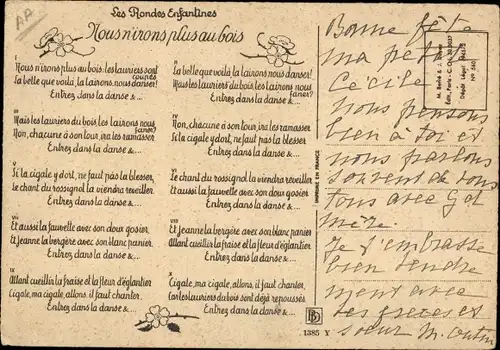 AA
Les Rondes Enfantines
Nous n'irons plus au bois
I
Nous n'irons plus au bois: les lauriers sont
coupés
La belle que voilà, la lairons, nous danser!
Entrez dans la danse &...
II
La belle que voilà, la lairons nous danser!
Mais les lauriers du bois, les lairons nous
faner?
Entrez dans la danse &...
III
Mais les lauriers du bois les lairons nous
faner?
Non, chacune à son tour, ira les ramasser
Entrez dans la danse &...
IV
Non, chacune à son tour, ira les ramasser
Si la cigale y dort, ne faut pas la blesser
Entrez dans la danse &...
V
Si la cigale y dort, ne faut pas la blesser,
Le chant du rossignol la viendra réveiller
Entrez dans la danse &...
VI
Le chant du rossignol la viendra réveiller
Et aussi la fauvette avec son doux gosier
Entrez dans la danse &...
VII
Et aussi la fauvette avec son doux gosier
Et Jeanne la bergère avec son blanc panier
Entrez dans la danse &...
VIII
Et Jeanne la bergère avec son blanc panier
Allant cueillir la fraise et la fleur d'églantier
Entrez dans la danse &...
IX
Allant cueillir la fraise et la fleur d'églantier
Cigale, ma cigale, allons, il faut chanter
Entrez dans la danse &...
X
Cigale, ma cigale, allons, il faut chanter,
Car les lauriers du bois sont déjà repoussés
Entrez dans la danse &...
IMPRIMÉ EN FRANCE
1385 Y
Édit. Paris - C.
Dépôt Légal
N° 560
Bonne fête
ma petite
Cécile
nous pensons
bien à toi et
nous parlons
souvent de vous
tous avec G et
mère.
Je t'embrasse
bien tendre
ment avec
tes frères et
soeur M.